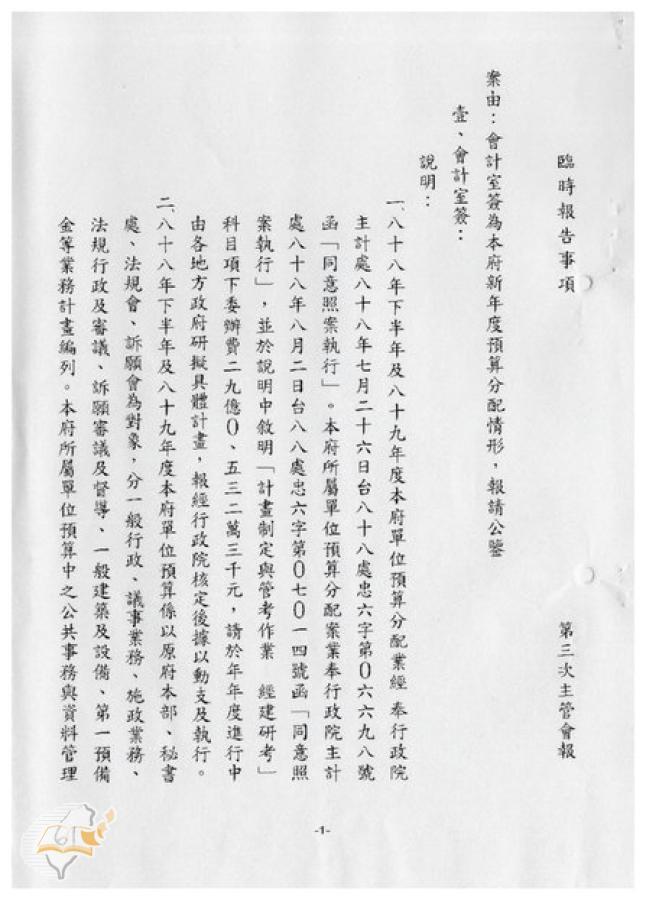 臨時報告事項
第三次主管會報
案由：會計室簽為本府新年度預算分配情形，報請公鑒
壹、會計室簽：
說明：
一、八十八年下半年及八十九年度本府單位預算分配業經 奉行政院
主計處八十八年七月二十六日台八十八處忠六字第０六六九八號
函「同意照案執行」。本府所屬單位預算分配案業奉行政院主計
處八十八年八月二日台八八處忠六字第０七０一四號函「同意照
案執行」，並於說明中敘明「計畫制定與管考作業 經建研考」
科目項下委辦費二九億０、五三二萬三千元，請於年年度進行中
由各地方政府研擬具體計畫，報經行政院核定後據以動支及執行。
二、八十八年下半年及八十九年度本府單位預算係以原府本部、秘書
處、法規會、訴願會為對象，分一般行政、議事業務、施政業務、
法規行政及審議、訴願審議及督導、一般建築及設備、第一預備
金等業務計畫編列。本府所屬單位預算中之公共事務與資料管理
-1-
61